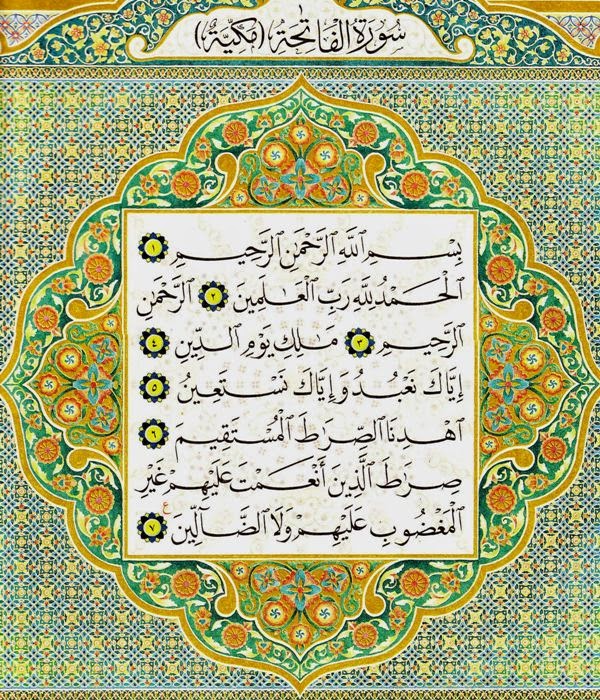 ١
سُورَةُ الفَاتِحَةِ (مَكِّيَّةٌ)
بِسْمِ ٱللَّهِ ٱلرَّحْمَٰنِ ٱلرَّحِيمِ ١
ٱلْحَمْدُ لِلَّهِ رَبِّ ٱلْعَٰلَمِينَ ٢ ٱلرَّحْمَٰنِ
ٱلرَّحِيمِ ٣ مَٰلِكِ يَوْمِ ٱلدِّينِ ٤
إِيَّاكَ نَعْبُدُ وَإِيَّاكَ نَسْتَعِينُ ٥
ٱهْدِنَا ٱلصِّرَٰطَ ٱلْمُسْتَقِيمَ ٦
صِرَٰطَ ٱلَّذِينَ أَنْعَمْتَ عَلَيْهِمْ غَيْرِ
ٱلْمَغْضُوبِ عَلَيْهِمْ وَلَا ٱلضَّآلِّينَ ع ٧